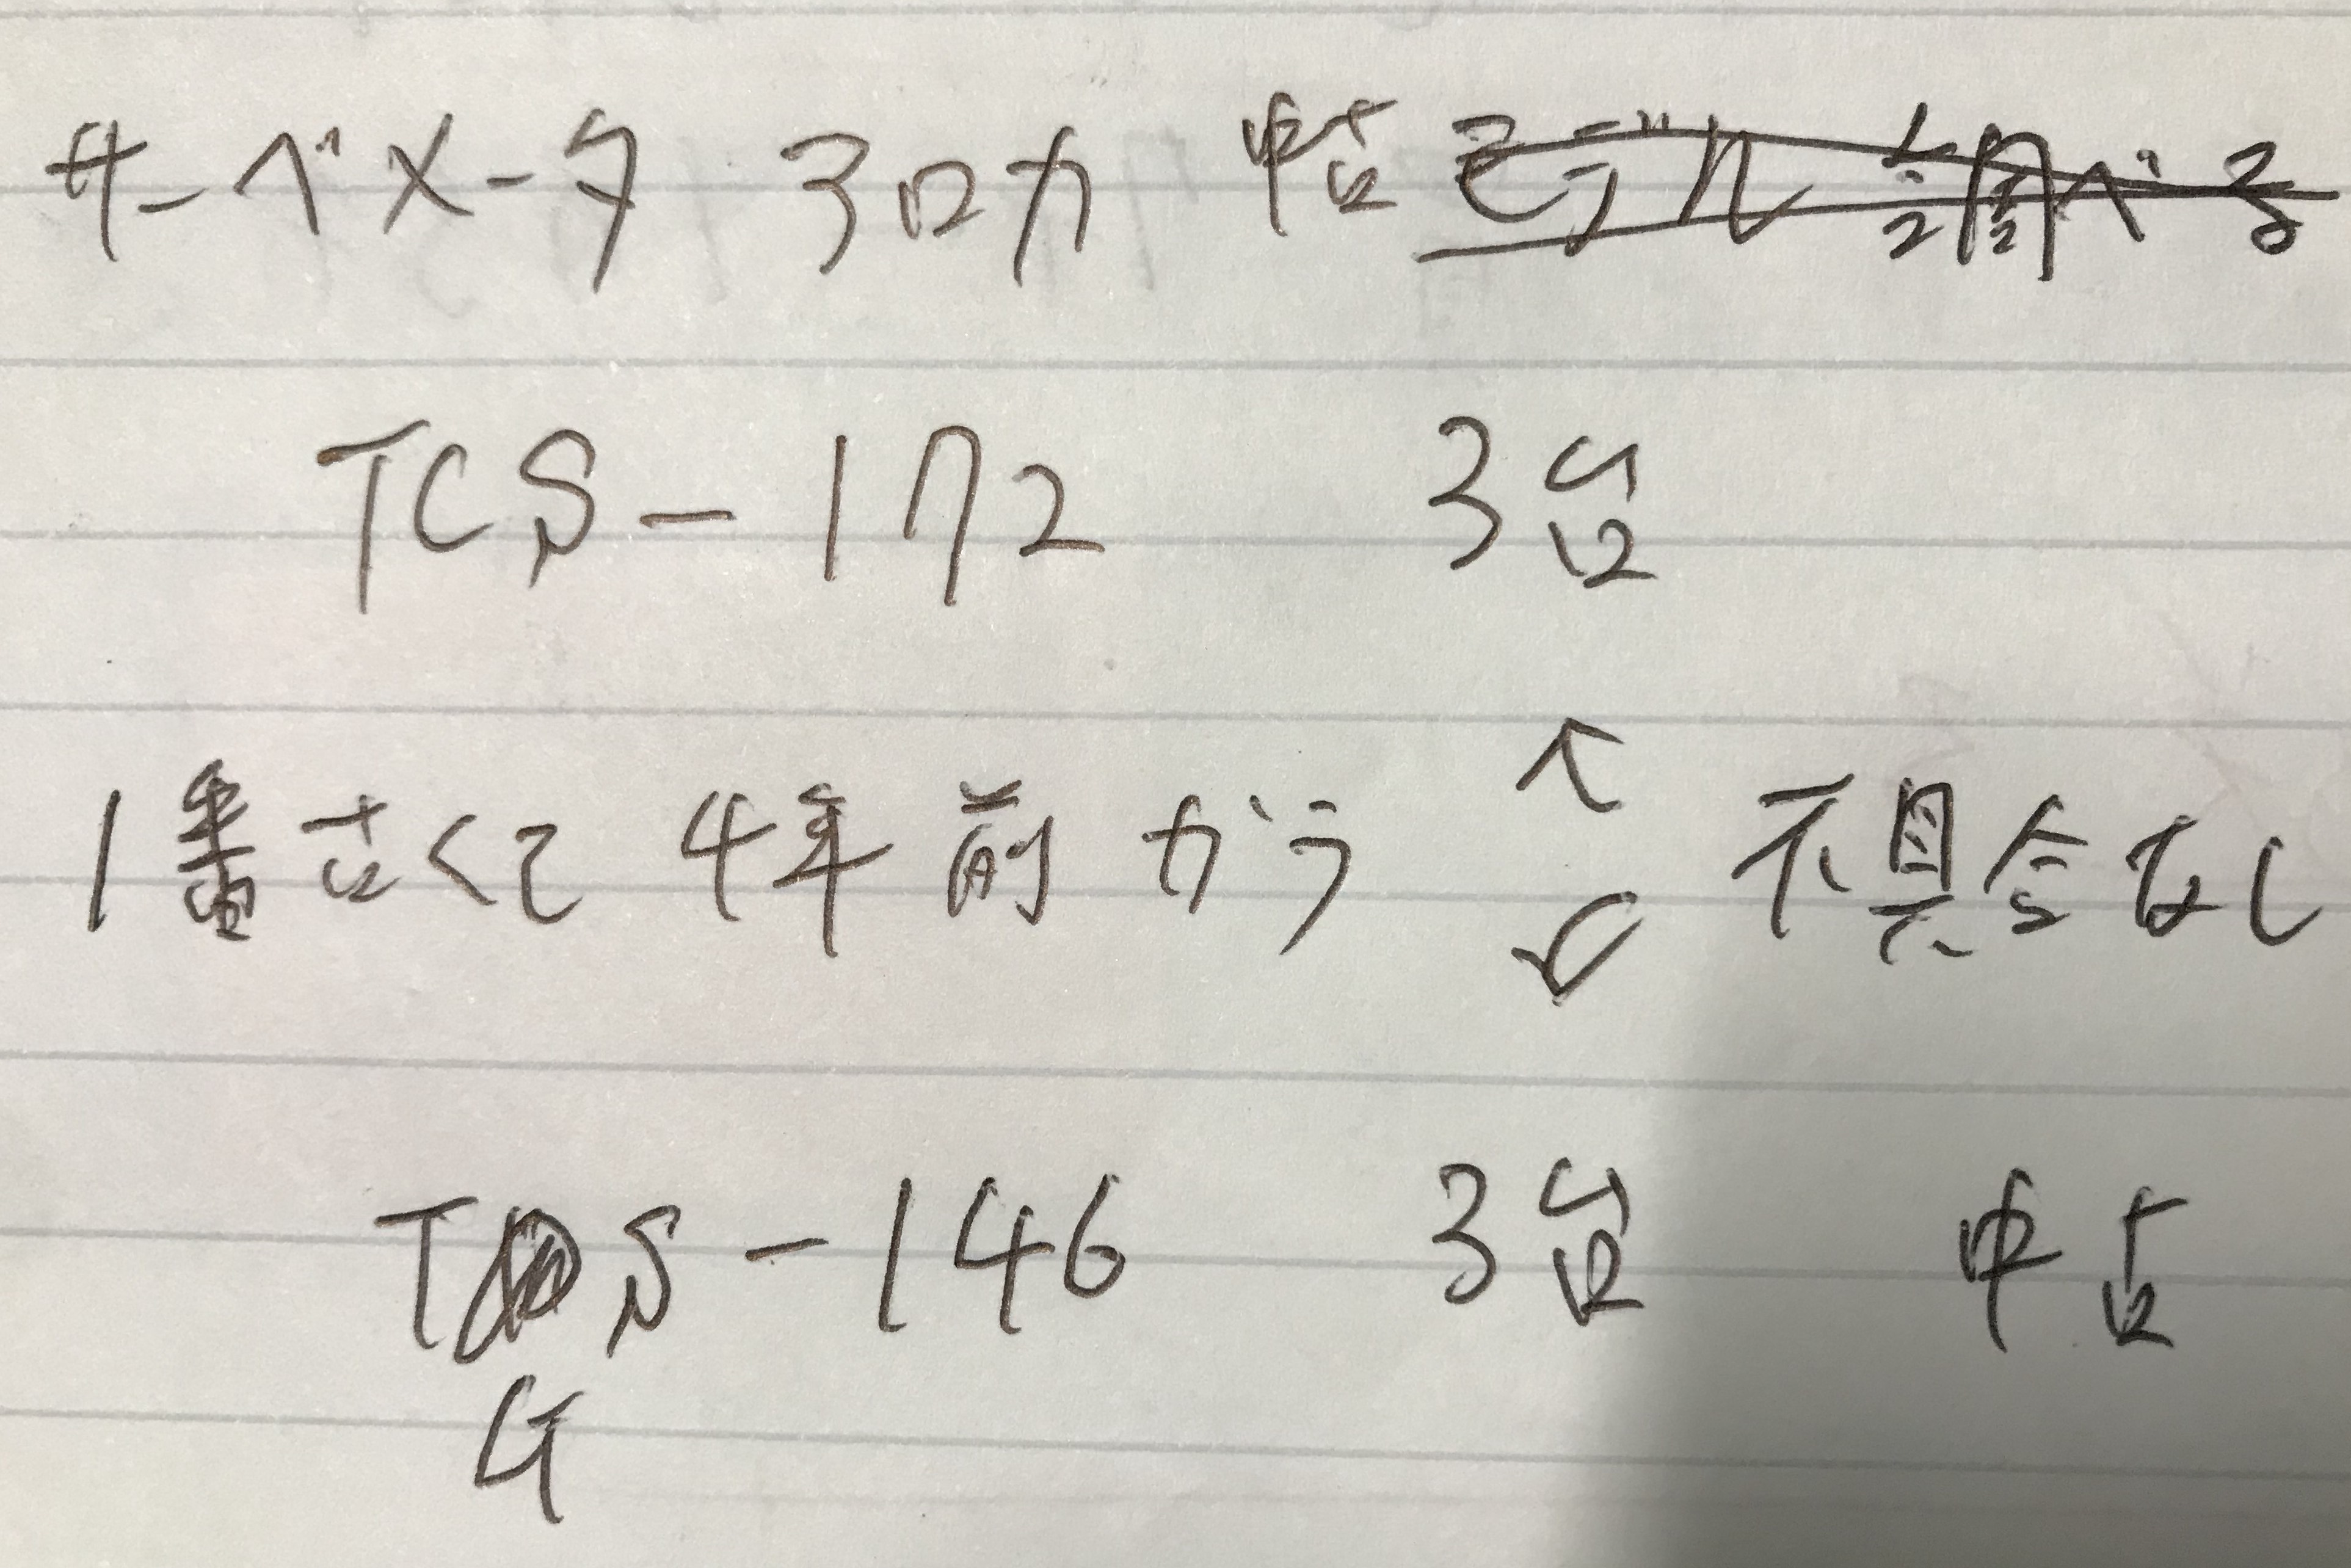 サーベメータ アロカ 中古 モデル 調べる
TCS-172 3台
1番古くて 4年前から 不具合なし
TGS-146 3台 中古